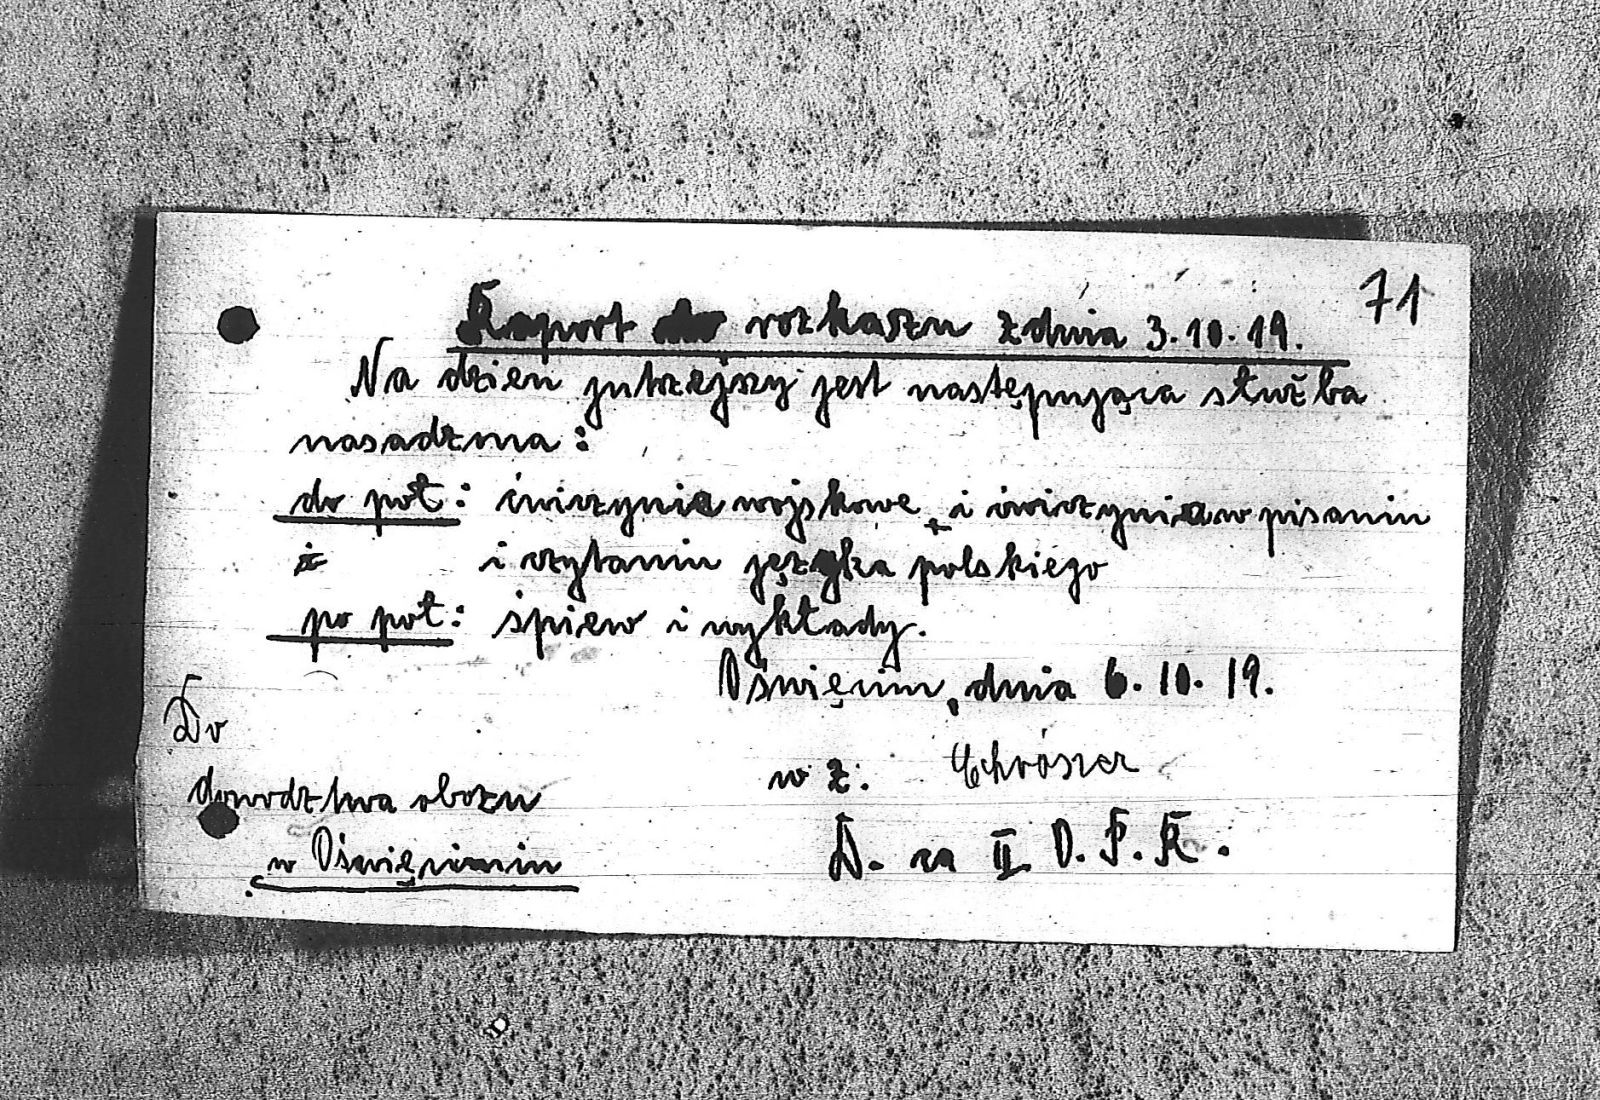 71
Raport do rozkaszu z dnia 3.10.19.
Na dzien jutrzejszy jest następująca służba
nasadzma:
do poł: ćwiczynia wojskowe i ćwiczynia w pisaniu
i czytaniu języka polskiego
po poł: śpiew i wykłady.
Oświęcim, dnia 6.10.19.
Do
w z.
dowodztwa obozu
w Oświęcimiu
D. za II O. P. R.